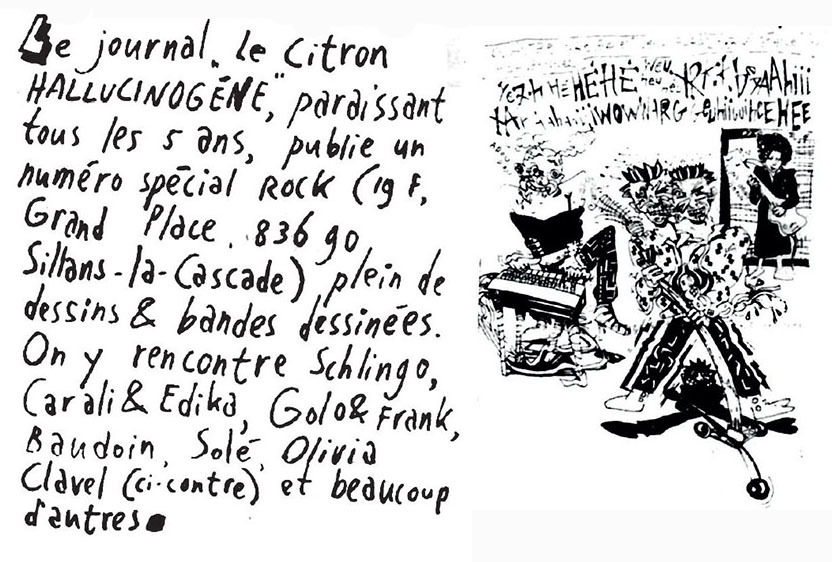 Le journal "le Citron
HALLUCINOGÉNE", paraissant
tous les 5 ans, publie un
numéro spécial ROCK (19 F,
Grand Place. 83690
Sillans-la-Cascade) plein de
dessins & bandes dessinées.
On y rencontre Schlingo,
Carali & Edika, Golo & Frank,
Baudoin, Solé, Olivia
Clavel (ci-contre) et beaucoup
d'autres.